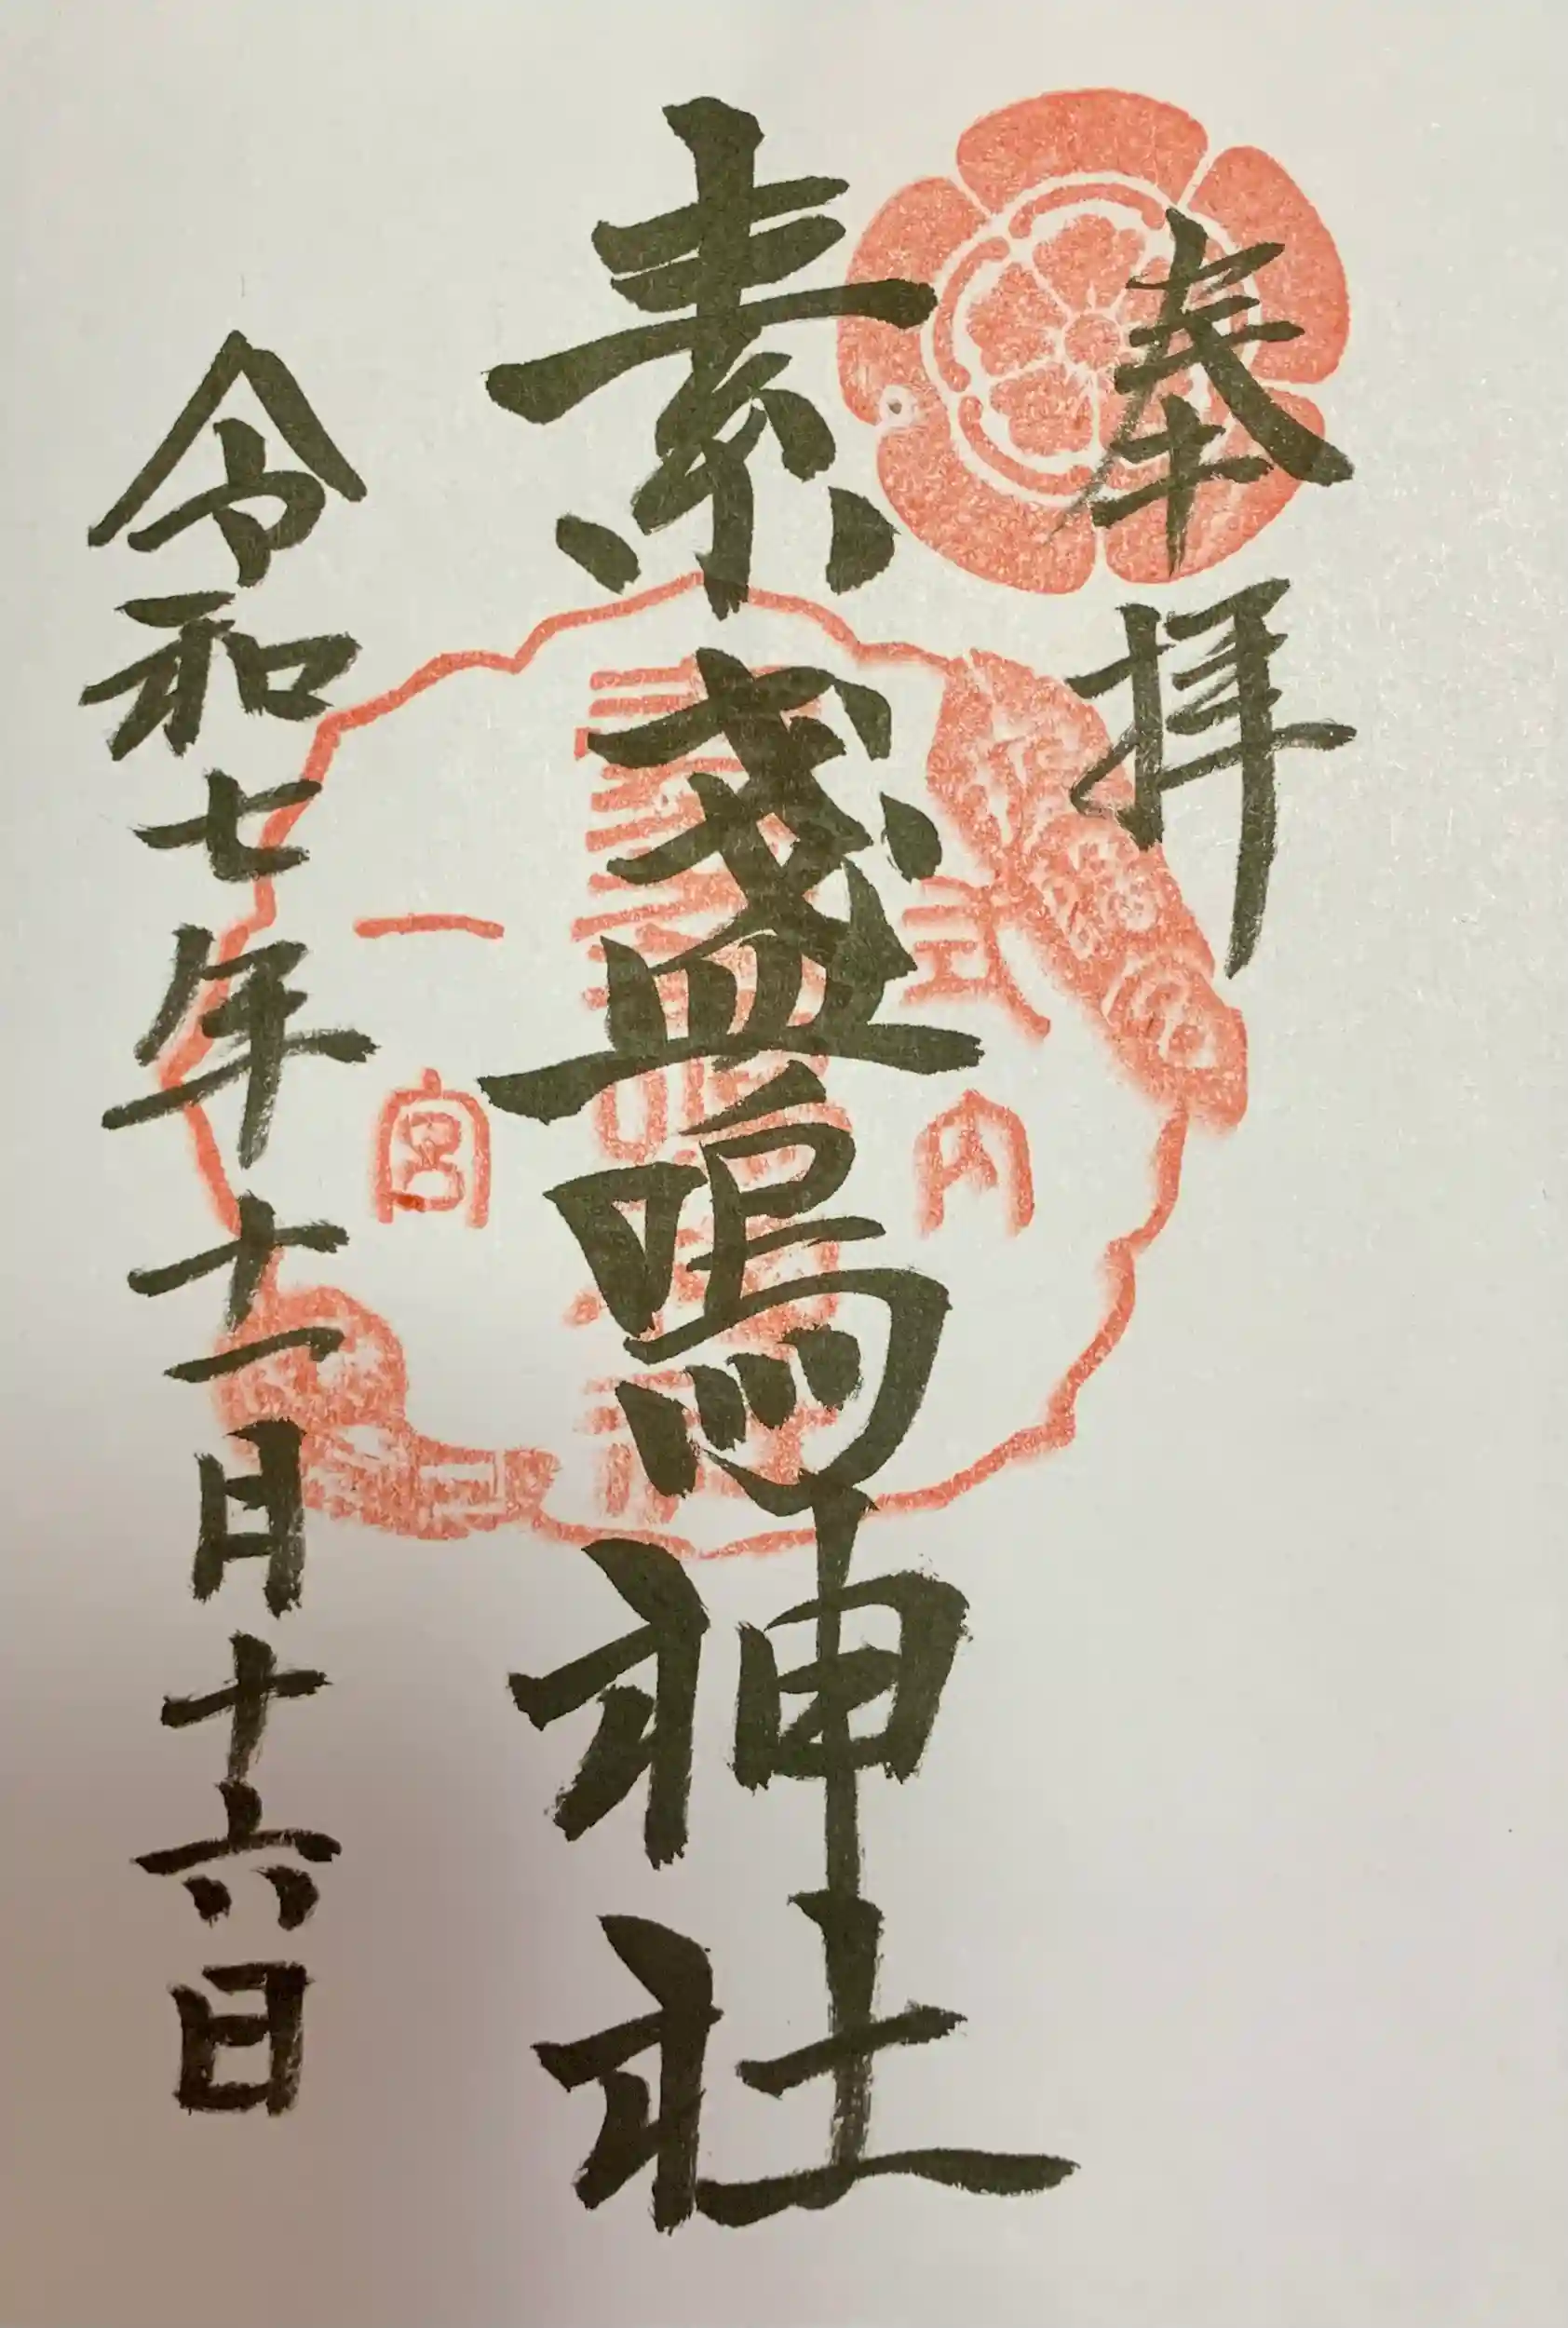 奉拝
素盞嗚神社
令和七年十一月十六日
式内
一宮